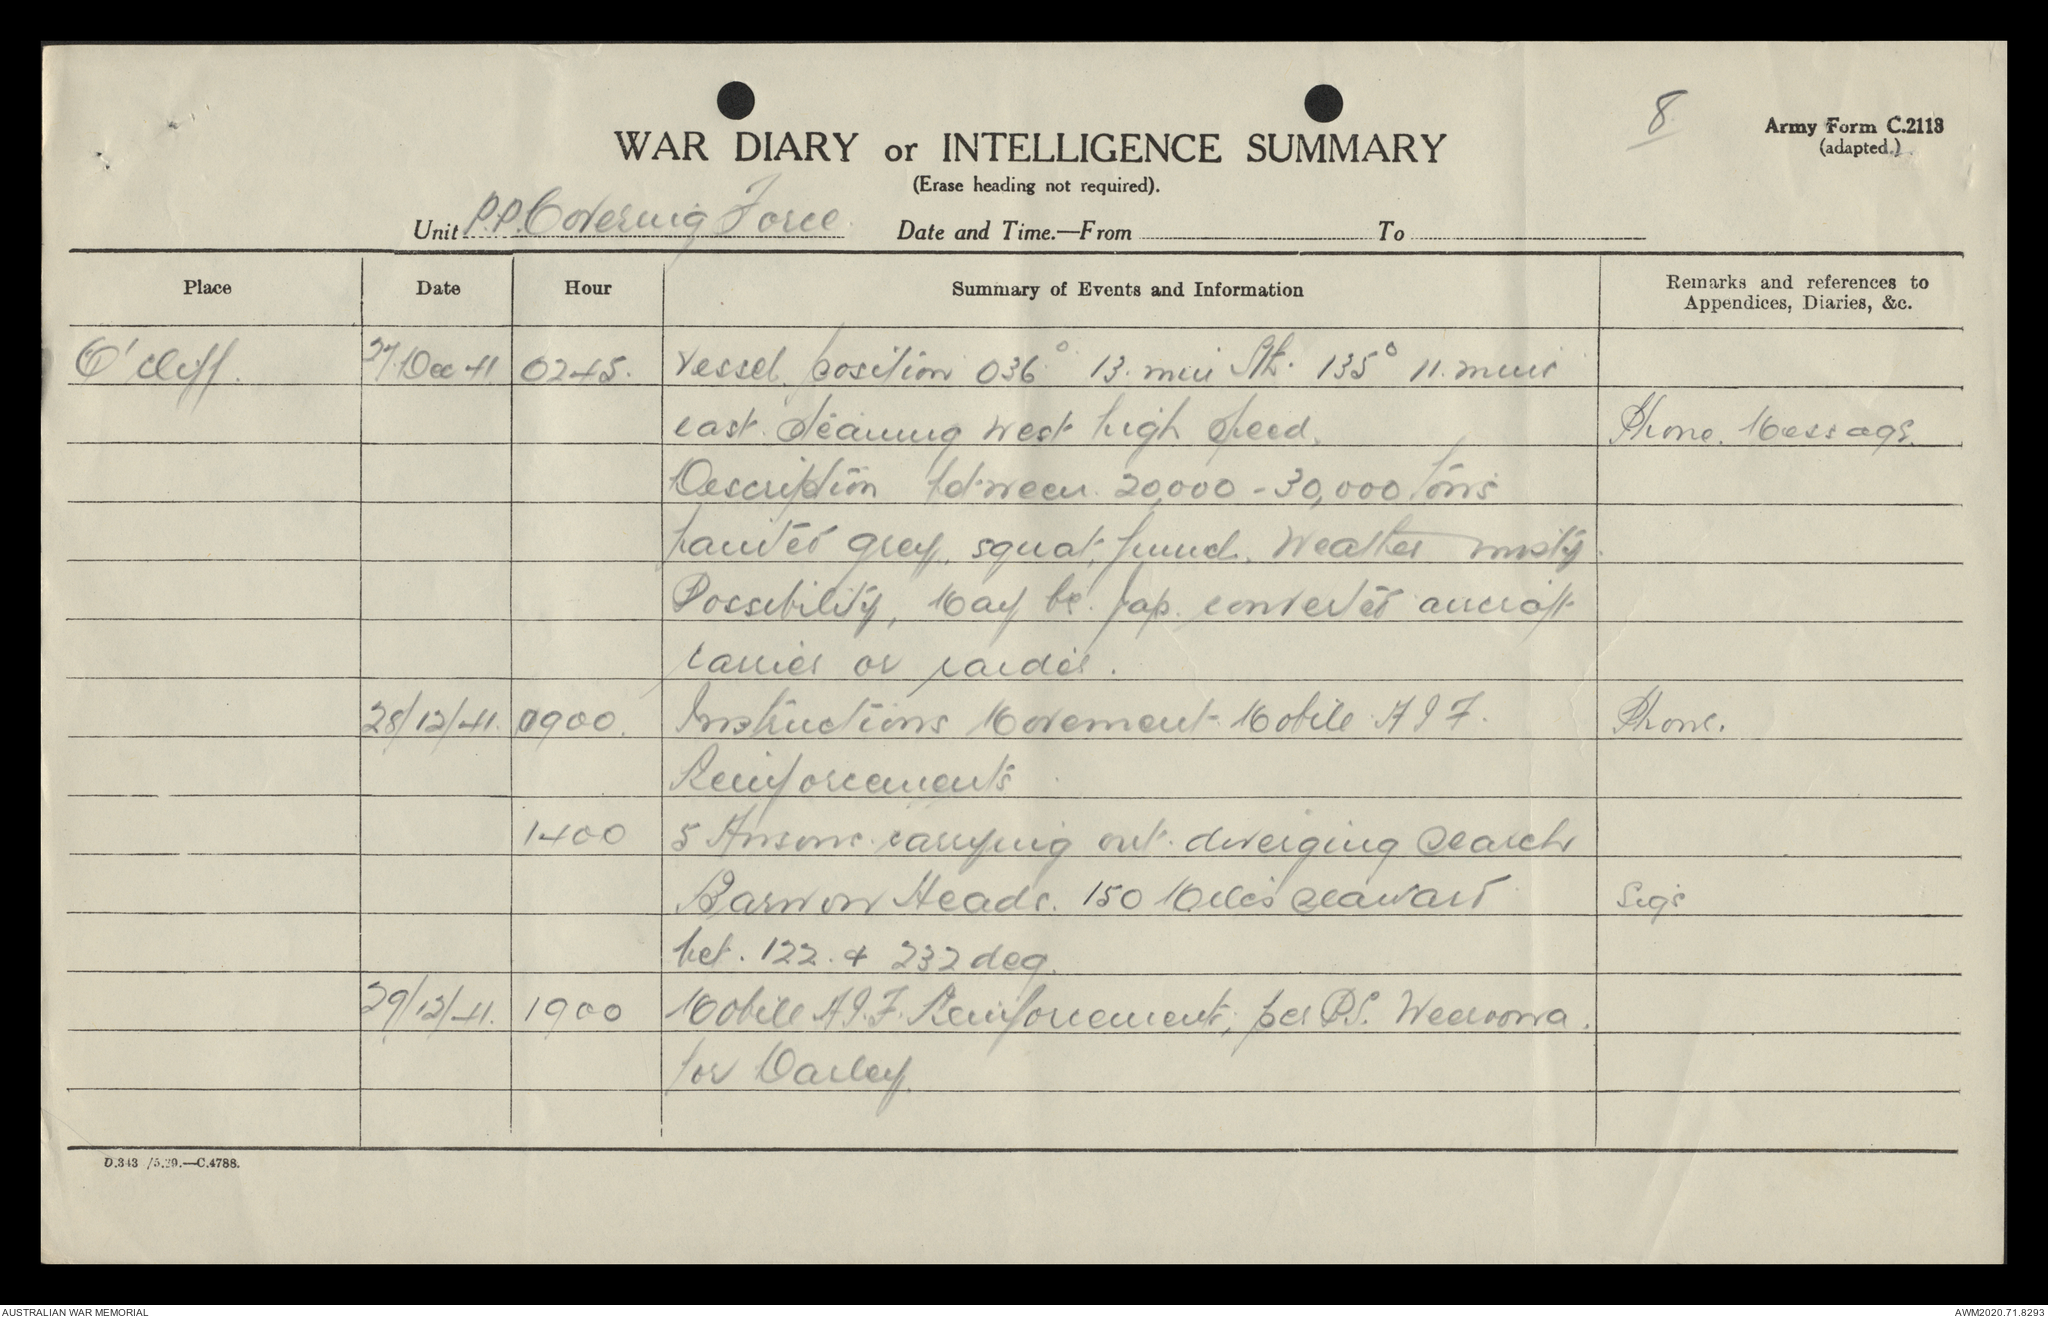 8.
Army Form C.2118
(adapted.)
WAR DIARY or INTELLIGENCE SUMMARY
(Erase heading not required).
Unit P.P. Covering Force. Date and Time.—From To
Place Date Hour Summary of Events and Information Remarks and references to Appendices, Diaries, &c.
O'cliff. 27.Dec 41 0245. Vessel position 036° 13. min Sth. 135° 11. mins
east steaming west high speed. Phone. Message.
Description between 20,000 - 30,000 tons
painted grey, squat, funnel. Weather misty.
Possibility, May be Jap. converted aircraft
carrier or raider.
28/12/41. 0900. Instructions Movement Mobile A I F. Phone.
Reinforcements
1400 5 Ansons carrying out diverging search
Barwon Heads. 150 Miles seaward Sigs
bet. 122. & 232 deg.
29/12/41. 1900 Mobile A.I.F. Reinforcement, per P.S. Weeroona.
for Darley.
D.343 /5.39.—C.4788.
AUSTRALIAN WAR MEMORIAL AWM2020.71.8293